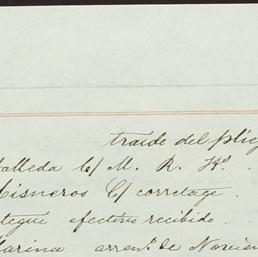 traido del plieg
talleda C/ M. R. Hs.
Cisneros C/ corretage.
tegui efectivo recibido.
larina arrent. de Novien